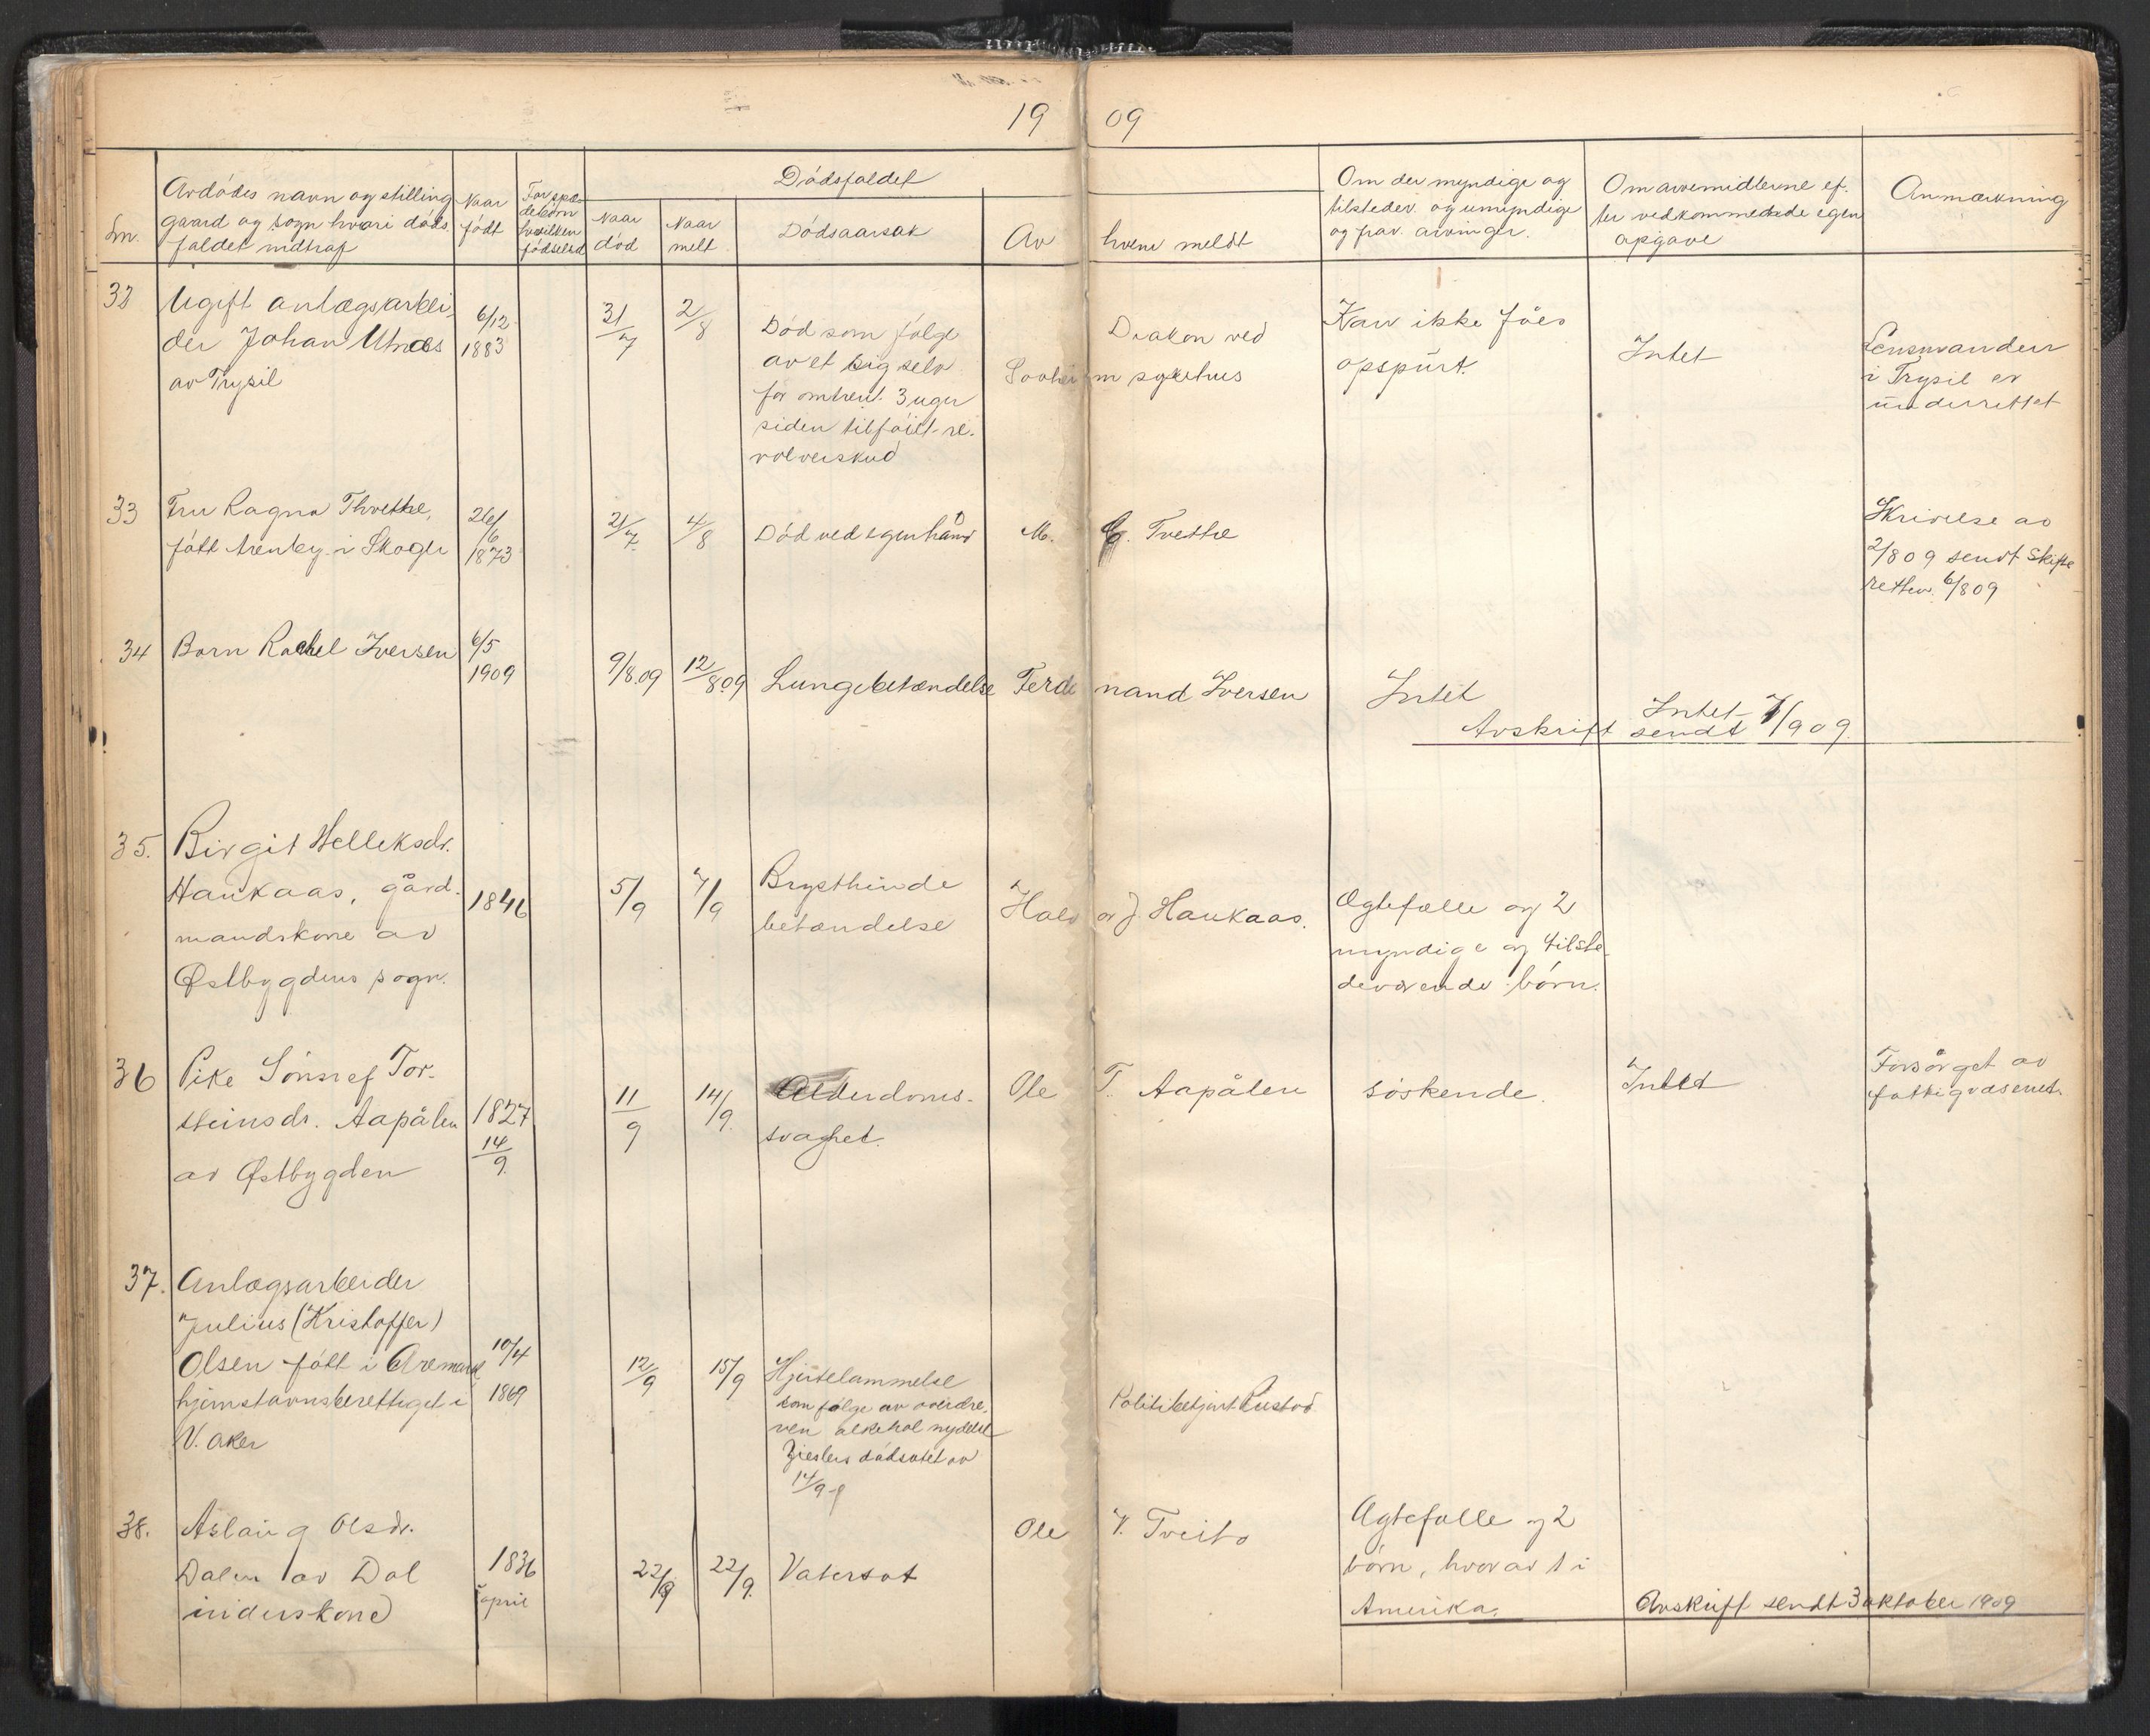 19 09
Lnr.
Avdödes navn og stilling
gaard og sogn hvori döds
faldet indtraf
Naar
födt
For spæ-
debörn
hvilken
födselsd
Dödsfaldet
Naar
död
Naar
melt
Dödsaarsak
Av hvem meldt
Om der myndige og
tilstedev. og umyndige
og frav. arvinger.
Om arvemidlerne ef-
ter vedkommende egen
opgave
Anmærkning
32
Ugift anlægsarbei-
der Johan Utnes
av Trysil
6/12
1883
31/7
2/8
Död som fölge
av et sig selv
for omtrent 3 uger
siden tilföiet re-
volverskud
Diakon ved
Sovheim sykehus
Kan ikke fåes
opspurt.
Intet
Lensmanden
i Trysil er
underrettet
33
Fru Ragna Thvethe,
fött Arenby i Skoger
26/6
1873
21/7
4/8
Död ved egen hånd
M. C. Tvethe
Skrivelse av
2/8 09 sendt Skifte
retten 6/8 09
34
Barn Rachel Iversen
6/5
1909
9/8.09
12/8 09
Lungebetændelse
Ferdinand Iversen
Intet
Intet
Avskrift sendt 7/9 09.
35.
Birgit Helleksdr.
Haukaas, gård-
mandskone av
Østbygdens sogn.
1846
5/9
7/9
Brysthinde
betændelse
Halvor J. Haukaas.
Ægtefælle og 2
myndige og tilste-
deværende börn.
36
Pike Sönnef Tor-
steinsdr. Aapålen
av Østbygden
1827
14/9.
11/9
14/9.
Alderdoms-
svaghet.
Ole T. Aapålen
söskende.
Intet
Forsörget av
fattigvæsenet.
37.
Anlægsarbeider
Julius (Kristoffer)
Olsen fött i Aremark
hjemstavnsberettiget i
V. Aker
10/4
1869
12/9
15/9
Hjertelammelse
som fölge av overdre-
ven alkohol nydelse
Zieslers dödsatest av
14/9
Politibetjent Rustad
38.
Aslaug Olsdr.
Dalen av Dal
inderskone
1836
april
22/9
22/9.
Vatersot
Ole V. Tveito
Ægtefælle og 2
börn, hvorav 1 i
Amerika.
Avskrift sendt 3 oktober 1909